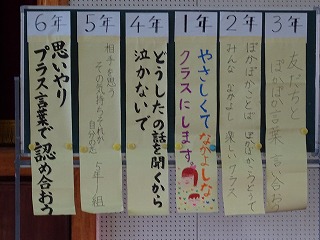 3年
友だちと
ぽかぽか言葉言い合おう
2年
ぽかぽかことば
みんな なかよし 楽しいクラス
1年
やさしくてなかよしな
クラスにします。
4年
どうしたの話を聞くから
泣かないで
5年
相手を思う
その気持ちそれが
自分の
5年1組
6年
思いやり
プラス言葉で認め合おう